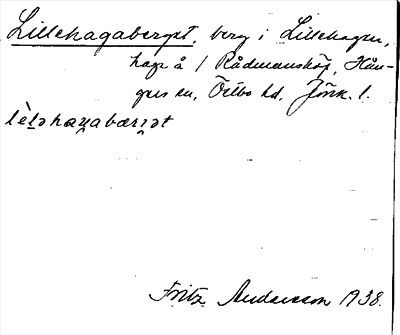 Lillehagaberget, berg i Lillehagen,
hage å / Rådmanskop, Hån-
gers sn, Östbo hd, Jönk. l.
lèləhagabærjət
Fritz Andersson 1938.